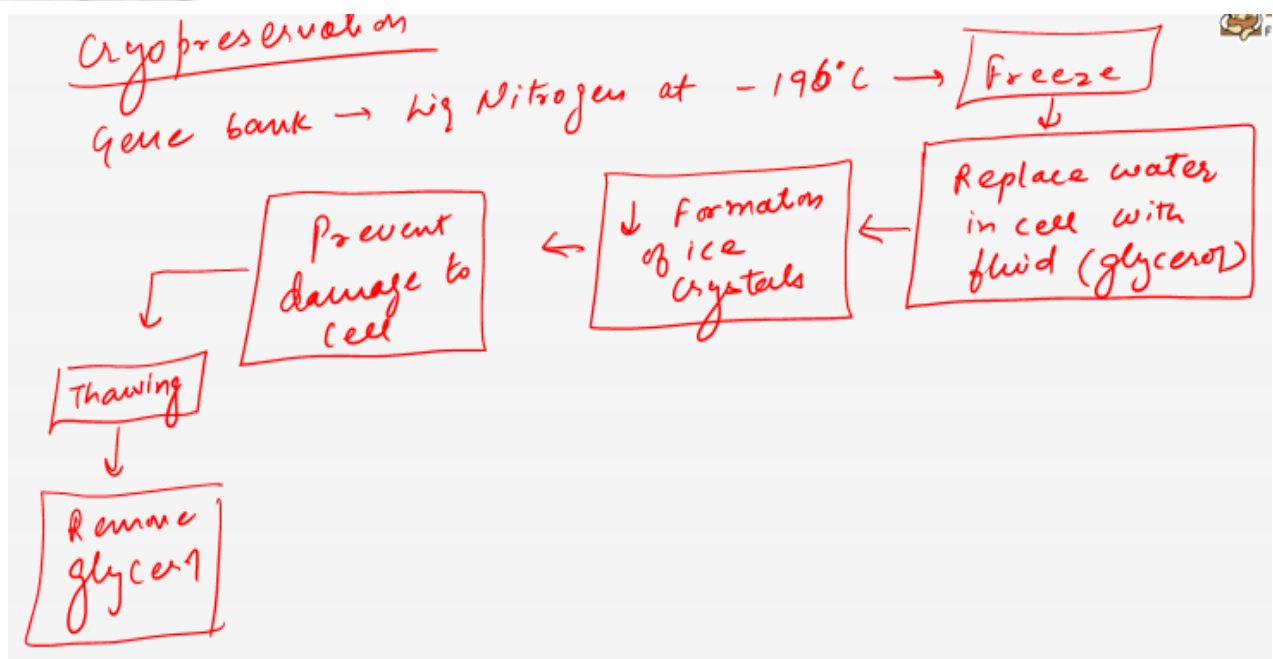 Cryopreservation
Gene bank → Liq Nitrogen at - 196°C → Freeze
↓
Replace water
in cell with
fluid (glycerol)
←
↓ Formaton
of ice
crystals
←
Prevent
damage to
cell
↓
Thawing
↓
Remove
glycerol
F